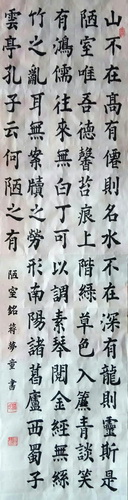 山不在高有僊則名水不在深有龍則靈斯是
陋室唯吾德馨苔痕上階綠草色入簾青談笑
有鴻儒往來無白丁可以調素琴閱金經無絲
竹之亂耳無案牘之勞形南陽諸葛廬西蜀子
雲亭孔子云何陋之有
陋室銘 蔣夢童書